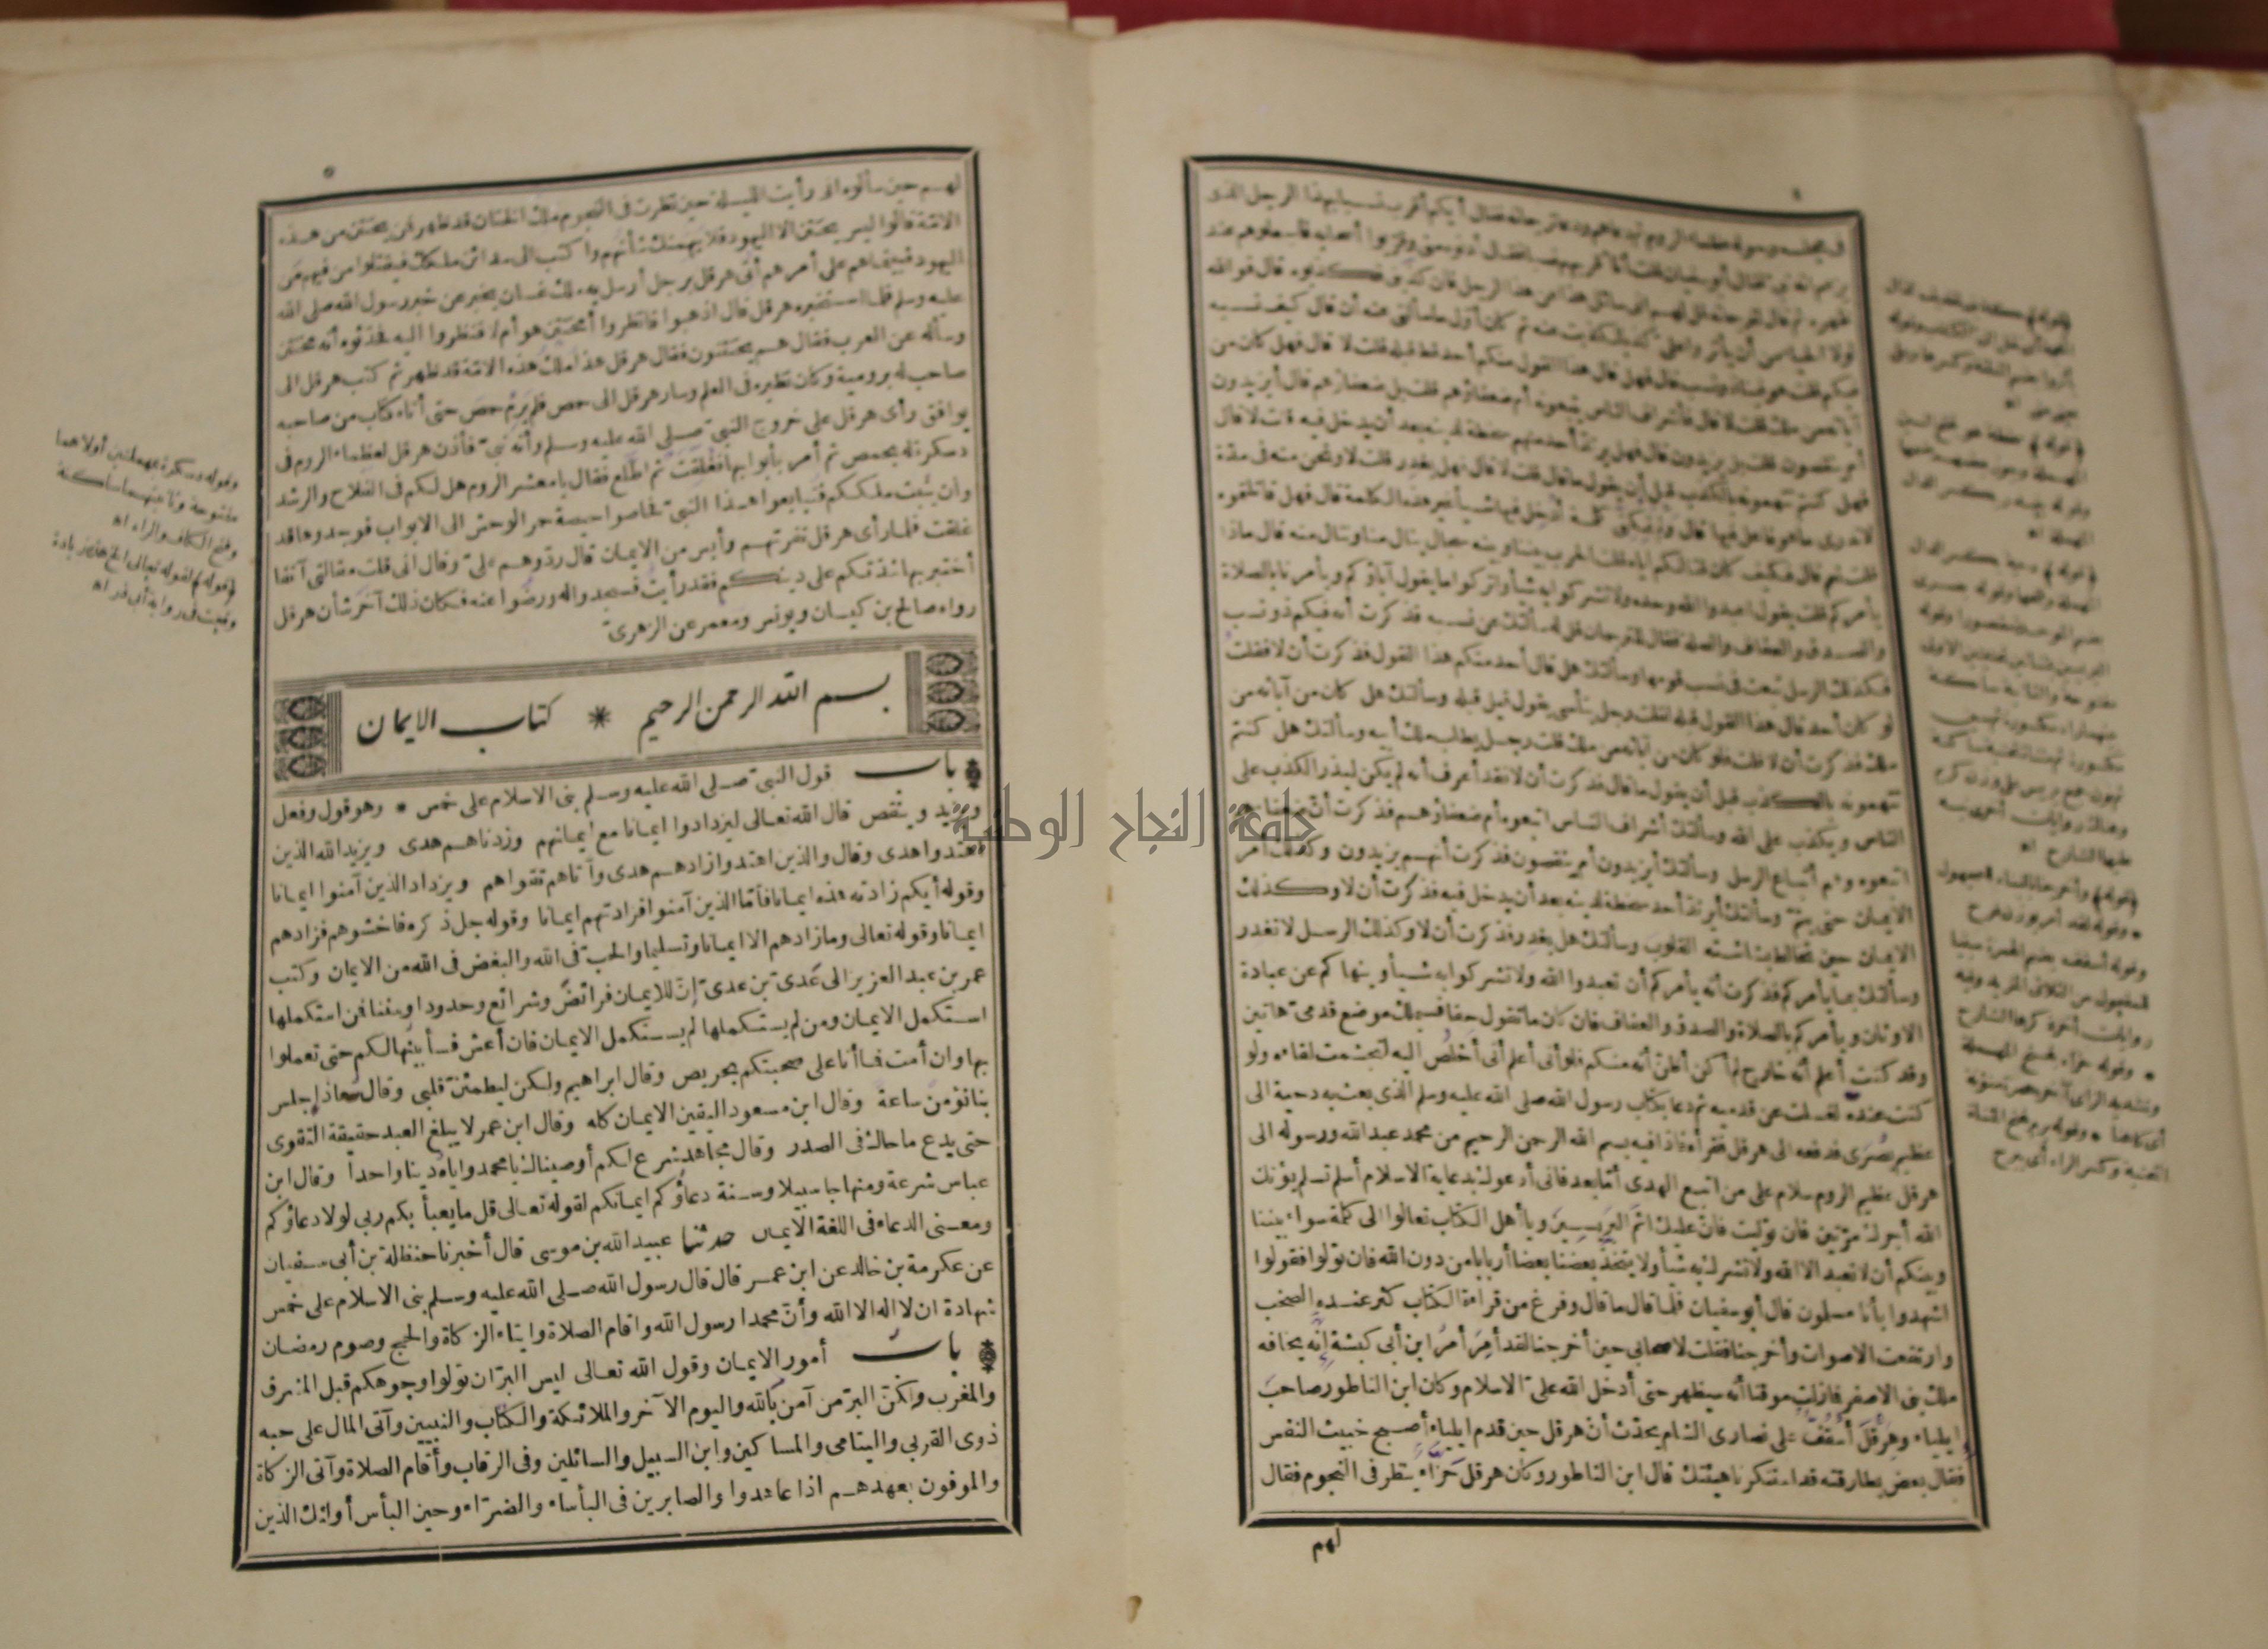 في مجلسه وحوله عظماء الروم ثم دعاهم ودعا ترجمانه فقال أيكم أقرب نسبا بهذا الرجل الذي
يزعم أنه نبي فقال أبو سفيان فقلت أنا أقربهم نسبا فقال أدنوه مني وقربوا أصحابه فاجعلوهم عند
ظهره ثم قال لترجمانه قل لهم اني سائل هذا عن هذا الرجل فان كذبني فكذبوه قال فوالله
لولا الحياء من أن يأثروا علي كذبا لكذبت عنه ثم كان أول ما سألني عنه أن قال كيف نسبه
فيكم قلت هو فينا ذو نسب قال فهل قال هذا القول منكم أحد قط قبله قلت لا قال فهل كان من
آبائه من ملك قلت لا قال فأشراف الناس يتبعونه أم ضعفاؤهم قلت بل ضعفاؤهم قال أيزيدون
أم ينقصون قلت بل يزيدون قال فهل يرتد أحد منهم سخطة لدينه بعد أن يدخل فيه قلت لا قال
فهل كنتم تتهمونه بالكذب قبل أن يقول ما قال قلت لا قال فهل يغدر قلت لا ونحن منه في مدة
لا ندري ما هو فاعل فيها قال ولم تمكني كلمة أدخل فيها شيأ غير هذه الكلمة قال فهل قاتلتموه
قلت نعم قال فكيف كان قتالكم اياه قلت الحرب بيننا وبينه سجال ينال منا وننال منه قال ماذا
يأمركم قلت يقول اعبدوا الله وحده ولا تشركوا به شيأ واتركوا ما يقول آباؤكم ويأمرنا بالصلاة
والصدق والعفاف والصلة فقال للترجمان قل له سألتك عن نسبه فذكرت أنه فيكم ذو نسب
فكذلك الرسل تبعث في نسب قومها وسألتك هل قال أحد منكم هذا القول فذكرت أن لا فقلت
لو كان أحد قال هذا القول قبله لقلت رجل يتأسى بقول قيل قبله وسألتك هل كان من آبائه من
ملك فذكرت أن لا قلت فلو كان من آبائه من ملك قلت رجل يطلب ملك أبيه وسألتك هل كنتم
تتهمونه بالكذب قبل أن يقول ما قال فذكرت أن لا فقد أعرف أنه لم يكن ليذر الكذب على
الناس ويكذب على الله وسألتك أشراف الناس اتبعوه أم ضعفاؤهم فذكرت أن ضعفاءهم
اتبعوه وهم أتباع الرسل وسألتك أيزيدون أم ينقصون فذكرت أنهم يزيدون وكذلك أمر
الايمان حتى يتم وسألتك أيرتد أحد سخطة لدينه بعد أن يدخل فيه فذكرت أن لا وكذلك
الايمان حين تخالط بشاشته القلوب وسألتك هل يغدر فذكرت أن لا وكذلك الرسل لا تغدر
وسألتك بما يأمركم فذكرت أنه يأمركم أن تعبدوا الله ولا تشركوا به شيأ وينهاكم عن عبادة
الاوثان ويأمركم بالصلاة والصدق والعفاف فان كان ما تقول حقا فسيملك موضع قدمي هاتين
وقد كنت أعلم أنه خارج لم أكن أظن أنه منكم فلو أني أعلم أني أخلص اليه لتجشمت لقاءه ولو
كنت عنده لغسلت عن قدميه ثم دعا بكتاب رسول الله صلى الله عليه وسلم الذي بعث به دحية الى
عظيم بصرى فدفعه الى هرقل فقرأه فاذا فيه بسم الله الرحمن الرحيم من محمد عبد الله ورسوله الى
هرقل عظيم الروم سلام على من اتبع الهدى أما بعد فاني أدعوك بدعاية الاسلام أسلم تسلم يؤتك
الله أجرك مرتين فان توليت فان عليك اثم اليريسين ويا أهل الكتاب تعالوا الى كلمة سواء بيننا
وبينكم أن لا نعبد الا الله ولا نشرك به شيأ ولا يتخذ بعضنا بعضا أربابا من دون الله فان تولوا فقولوا
اشهدوا بأنا مسلمون قال أبو سفيان فلما قال ما قال وفرغ من قراءة الكتاب كثر عنده الصخب
وارتفعت الاصوات وأخرجنا فقلت لاصحابي حين أخرجنا لقد أمر أمر ابن أبي كبشة انه يخافه
ملك بني الاصفر فما زلت موقنا أنه سيظهر حتى أدخل الله علي الاسلام وكان ابن الناطور صاحب
ايلياء وهرقل أسقف على نصارى الشام يحدث أن هرقل حين قدم ايلياء أصبح خبيث النفس
فقال بعض بطارقته قد استنكرنا هيئتك قال ابن الناطور وكان هرقل حزاء ينظر في النجوم فقال
لهم
لهم حين سألوه اني رأيت الليلة حين نظرت في النجوم ملك الختان قد ظهر فمن يختتن من هذه
الامة قالوا ليس يختتن الا اليهود فلا يهمنك شأنهم واكتب الى مدائن ملكك فيقتلوا من فيهم من
اليهود فبينما هم على أمرهم أتى هرقل برجل أرسل به ملك غسان يخبر عن خبر رسول الله صلى الله
عليه وسلم فلما استخبره هرقل قال اذهبوا فانظروا أمختتن هو أم لا فنظروا اليه فحدثوه أنه مختتن
وسأله عن العرب فقال هم يختتنون فقال هرقل هذا ملك هذه الامة قد ظهر ثم كتب هرقل الى
صاحب له برومية وكان نظيره في العلم وسار هرقل الى حمص فلم يرم حمص حتى أتاه كتاب من صاحبه
يوافق رأى هرقل على خروج النبي صلى الله عليه وسلم وأنه نبي فأذن هرقل لعظماء الروم في
دسكرة له بحمص ثم أمر بأبوابها فغلقت ثم اطلع فقال يا معشر الروم هل لكم في الفلاح والرشد
وأن يثبت ملككم فتبايعوا هذا النبي فحاصوا حيصة حمر الوحش الى الابواب فوجدوها قد
غلقت فلما رأى هرقل نفرتهم وأيس من الايمان قال ردوهم علي وقال اني قلت مقالتي آنفا
أختبر بها شدتكم على دينكم فقد رأيت فسجدوا له ورضوا عنه فكان ذلك آخر شأن هرقل
رواه صالح بن كيسان ويونس ومعمر عن الزهري
وقوله دسكرة بمهملتين أولاهما
مفتوحة وثانيتهما ساكنة
وفتح الكاف والراء اه
بسم الله الرحمن الرحيم * كتاب الايمان
باب قول النبي صلى الله عليه وسلم بني الاسلام على خمس * وهو قول وفعل
ويزيد وينقص قال الله تعالى ليزدادوا ايمانا مع ايمانهم وزدناهم هدى ويزيد الله الذين
اهتدوا هدى وقال والذين اهتدوا زادهم هدى وآتاهم تقواهم ويزداد الذين آمنوا ايمانا
وقوله أيكم زادته هذه ايمانا فأما الذين آمنوا فزادتهم ايمانا وقوله جل ذكره فاخشوهم فزادهم
ايمانا وقوله تعالى وما زادهم الا ايمانا وتسليما والحب في الله والبغض في الله من الايمان وكتب
عمر بن عبد العزيز الى عدي بن عدي إن للايمان فرائض وشرائع وحدودا وسننا فمن استكملها
استكمل الايمان ومن لم يستكملها لم يستكمل الايمان فان أعش فسأبينها لكم حتى تعملوا
بها وان أمت فما أنا على صحبتكم بحريص وقال ابراهيم ولكن ليطمئن قلبي وقال معاذ إجلس
بنا نؤمن ساعة وقال ابن مسعود اليقين الايمان كله وقال ابن عمر لا يبلغ العبد حقيقة التقوى
حتى يدع ما حاك في الصدر وقال مجاهد شرع لكم أوصيناك يا محمد واياه دينا واحدا وقال ابن
عباس شرعة ومنهاجا سبيلا وسنة دعاؤكم ايمانكم لقوله تعالى قل ما يعبأ بكم ربي لولا دعاؤكم
ومعنى الدعاء في اللغة الايمان حدثنا عبيد الله بن موسى قال أخبرنا حنظلة بن أبي سفيان
عن عكرمة بن خالد عن ابن عمر قال قال رسول الله صلى الله عليه وسلم بني الاسلام على خمس
شهادة ان لا اله الا الله وأن محمدا رسول الله واقام الصلاة وايتاء الزكاة والحج وصوم رمضان
باب أمور الايمان وقول الله تعالى ليس البر ان تولوا وجوهكم قبل المشرق
والمغرب ولكن البر من آمن بالله واليوم الآخر والملائكة والكتاب والنبيين وآتى المال على حبه
ذوي القربى واليتامى والمساكين وابن السبيل والسائلين وفي الرقاب وأقام الصلاة وآتى الزكاة
والموفون بعهدهم اذا عاهدوا والصابرين في البأساء والضراء وحين البأس أولئك الذين
جامعة النجاح الوطنية